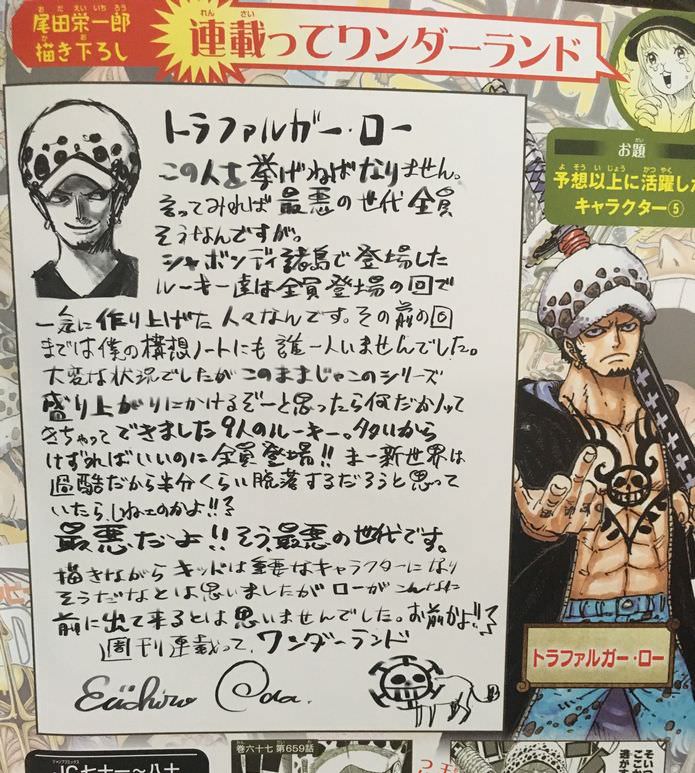 尾田栄一郎
描き下ろし
連載ってワンダーランド
お題
予想以上に活躍した
キャラクター⑤
トラファルガー・ロー
この人を挙げねばなりません。
言ってみれば最悪の世代全員
そうなんですが。
シャボンディ諸島で登場した
ルーキー達は全員登場の回で
一気に作り上げた人々なんです。その前の回
までは僕の構想ノートにも誰一人いませんでした。
大変な状況でしたがこのままじゃこのシリーズ
盛り上がりにかけるぞーと思ったら何だかノッて
きちゃってできました9人のルーキー。多いから
けずればいいのに全員登場!! まー新世界は
過酷だから半分くらい脱落するだろうと思って
いたら、しねェのかよ!!
最悪だよ!!そう、最悪の世代です。
描きながらキッドは重要なキャラクターになり
そうだなとは思いましたがローがこんなに
前に出て来るとは思いませんでした。お前かよ!!
週刊連載って、ワンダーランド
Eiichiro Oda.
トラファルガー・ロー
JC七十一〜八十
巻六十七 第659話